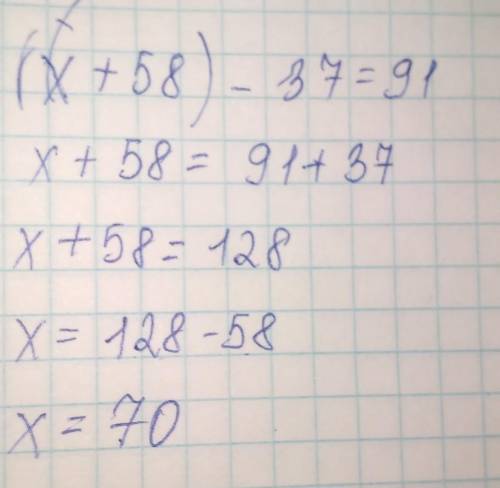 (x + 58) - 37 = 91
x + 58 = 91 + 37
x + 58 = 128
x = 128 - 58
x = 70